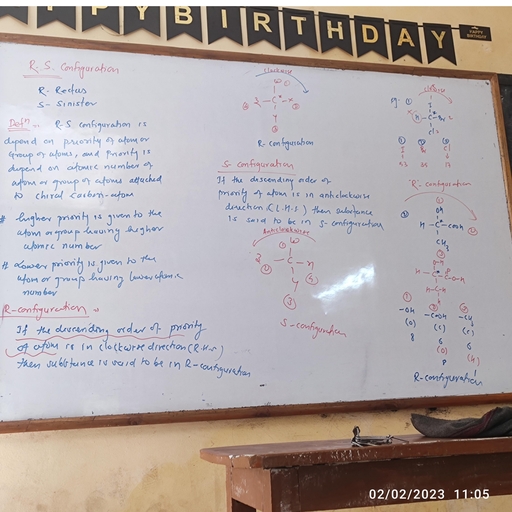 PYBIRTHDAY
HAPPY
BIRTHDAY
R.S. Configuration
R- Rectus
S- Sinister
Defn:-
R-S configuration is
depend on priority of atom or
Group of atoms, and priority is
depend on atomic number of
atom or group of atoms attached
to chiral carbon-atom
# higher priority is given to the
atom or group having higher
atomic number
# Lower priority is given to the
atom or group having lower atomic
number
R-configuration :-
If the descending order of priority
of atom is in clockwise direction (R.H.S)
then substance is said to be in R-configuration
clockwise
R-configuration
S-configuration
If the descending order of
priority of atom is in anticlockwise
direction (L.H.S) then substance
is said to be in S-configuration
Anticlockwise
S-configuration
eg. ①
clockwise
I
H-C*-Br
Cl
① ② ③
I Br Cl
53 35 17
R-configuration
OH
H-C-COOH
CH3
① ② ③
-OH -COOH -CH3
(O) (C) (C)
8 6 6
(O) (H)
8
R-configuration
02/02/2023 11:05